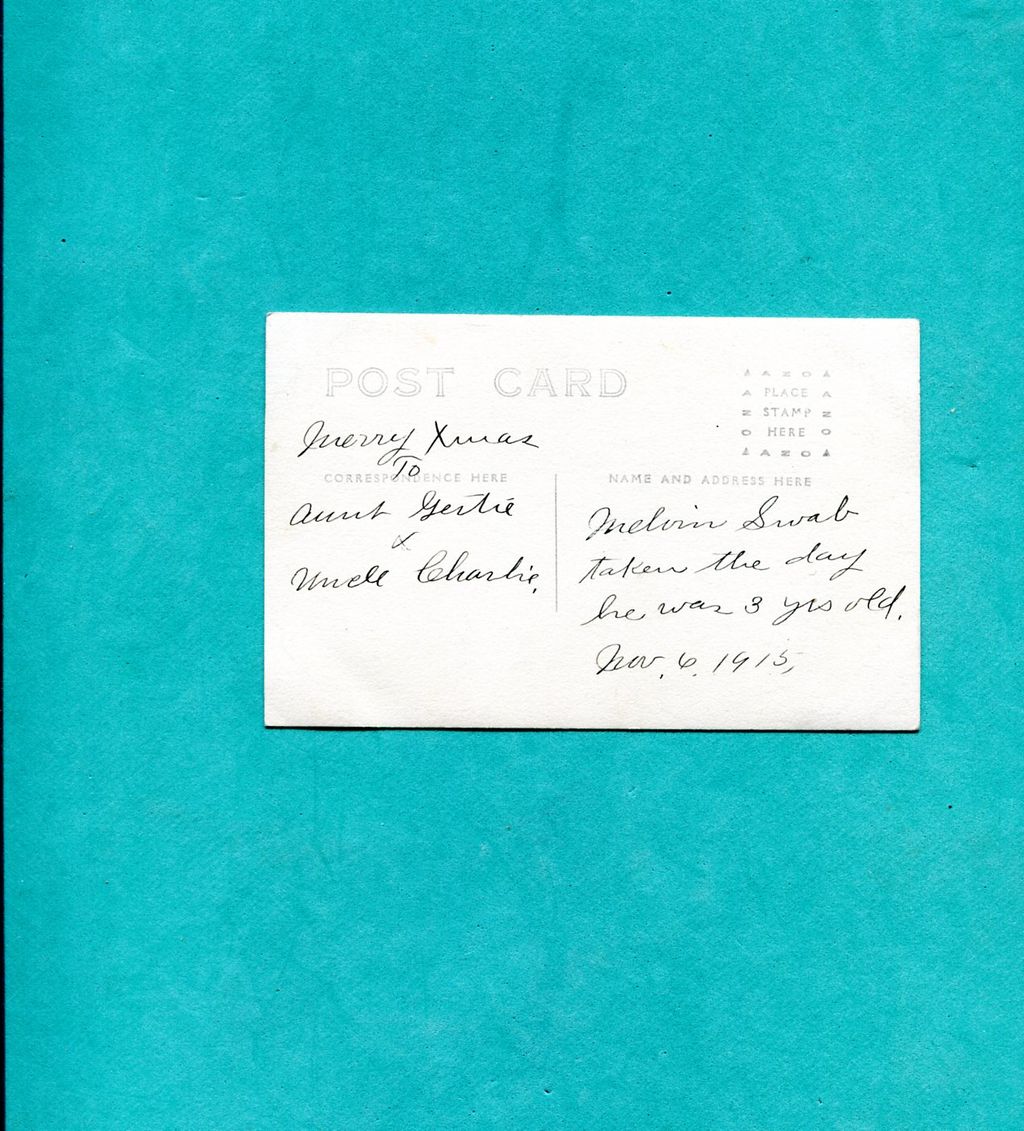 POST CARD
AZOA
A PLACE A
Z STAMP Z
O HERE O
AZOA
Merry Xmas
To
CORRESPONDENCE HERE
Aunt Gertie
&
Uncle Charlie.
NAME AND ADDRESS HERE
Melvin Swab
taken the day
he was 3 yrs old.
Nov. 6, 1915,